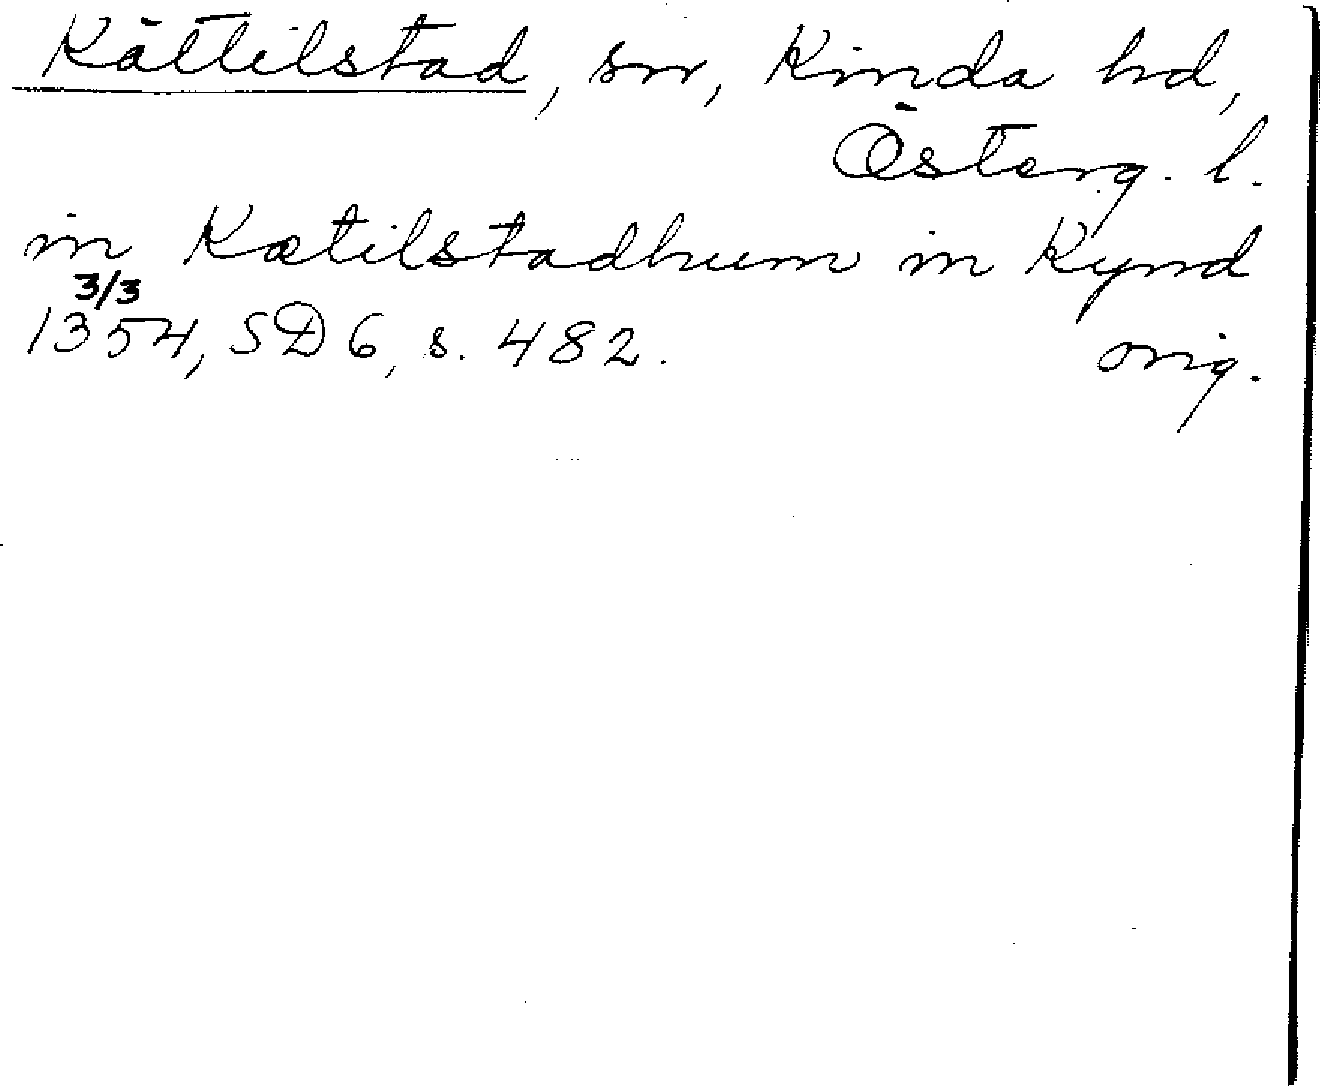 Kättilstad, sn, Kinda hd,
Österg. l.
in Kætilstadhum in Kynd
3/3
1354, SD 6, s. 482. orig.